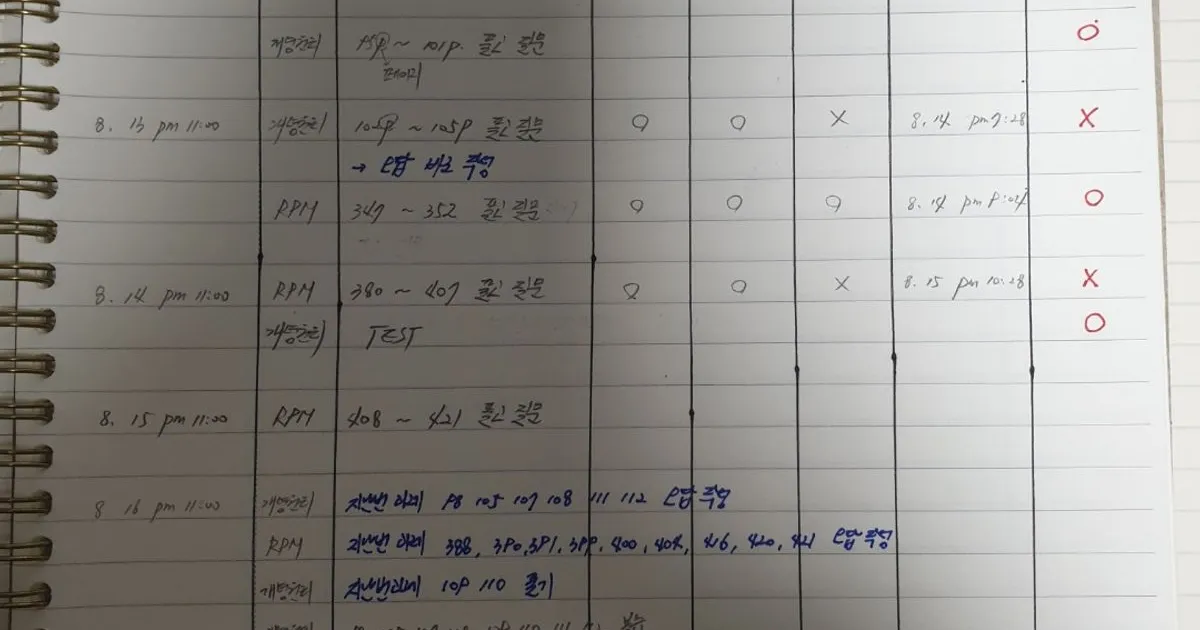 개명원리 95p ~ 101p. 풀고 질문 O
페이지
8. 13 pm 11:00 개명원리 102p ~ 105p 풀고 질문 O O X 8. 14 pm 7:28 X
→ 오답 바로 작성
RPM 347 ~ 352 풀고 질문 O O O 8. 14 pm 9:04 O
8. 14 pm 11:00 RPM 380 ~ 407 풀고 질문 O O X 8. 15 pm 10:28 X
개명원리 TEST O
8. 15 pm 11:00 RPM 408 ~ 421 풀고 질문
8 16 pm 11:00 개명원리 지난번 과제 98 105 107 108 111 112 오답 작성
RPM 지난번 과제 388, 390, 391, 399, 400, 404, 416, 420, 421 오답 작성
개명원리 지난번 과제 109 110 풀기